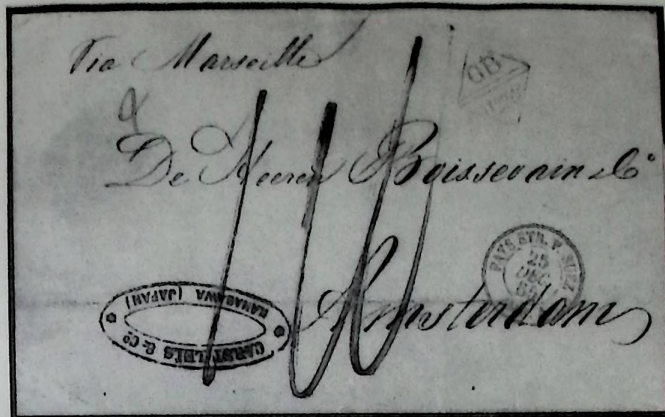 Via Marseille
GB
De Heeren Boissevain & Co
PAYS. ETR. V. SUEZ
25
DEC.
Amsterdam
KANAGAWA (JAPAN)
& Co